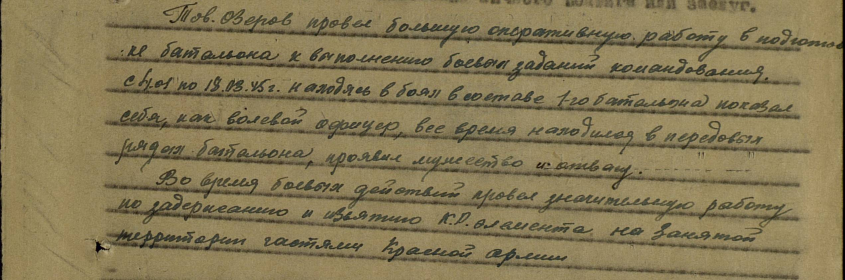 или заслуг.
Тов. Озеров провел большую оперативную работу в подготов
ке батальона к выполнению боевых заданий командования.
по 18.03.45 г. находясь в боях в составе 1-го батальона показал
себя, как волевой офицер, все время находился в передовых
рядах батальона, проявил мужество и отвагу.
Во время боевых действий провел значительную работу
по задержанию и изъятию К.Р. элемента на занятой
территории частями Красной армии